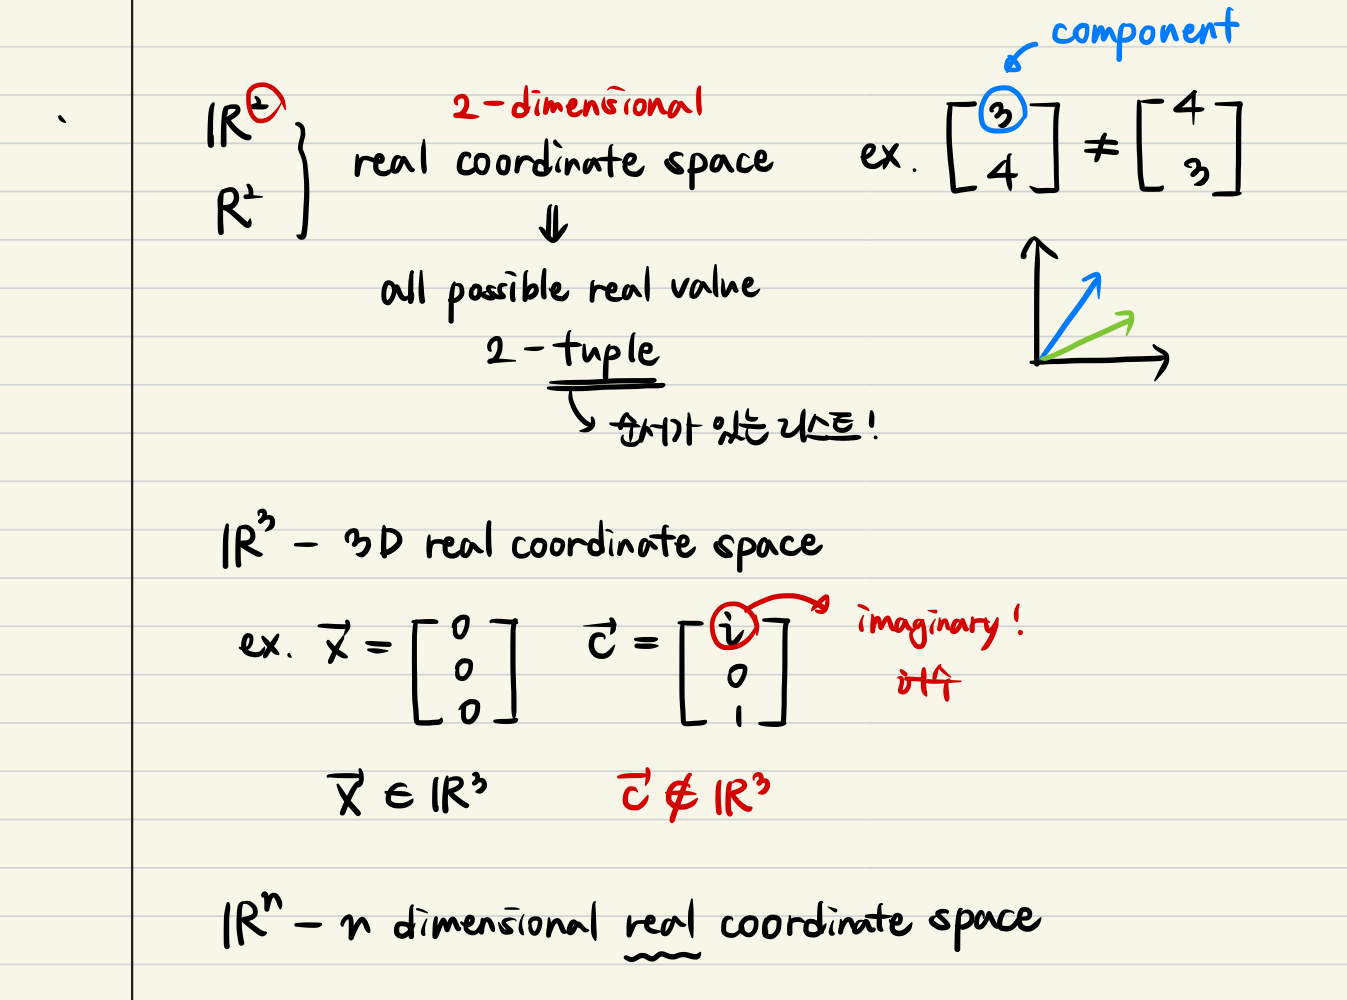 component
ℝ² 2-dimensional
R² real coordinate space
⇓
all possible real value
2-tuple
순서가 있는 리스트!
ex. [3 4] ≠ [4 3]
ℝ³ - 3D real coordinate space
ex. x⃗ = [0 0 0] c⃗ = [i 0 1] imaginary!
허수
x⃗ ∈ ℝ³ c⃗ ∉ ℝ³
ℝⁿ - n dimensional real coordinate space